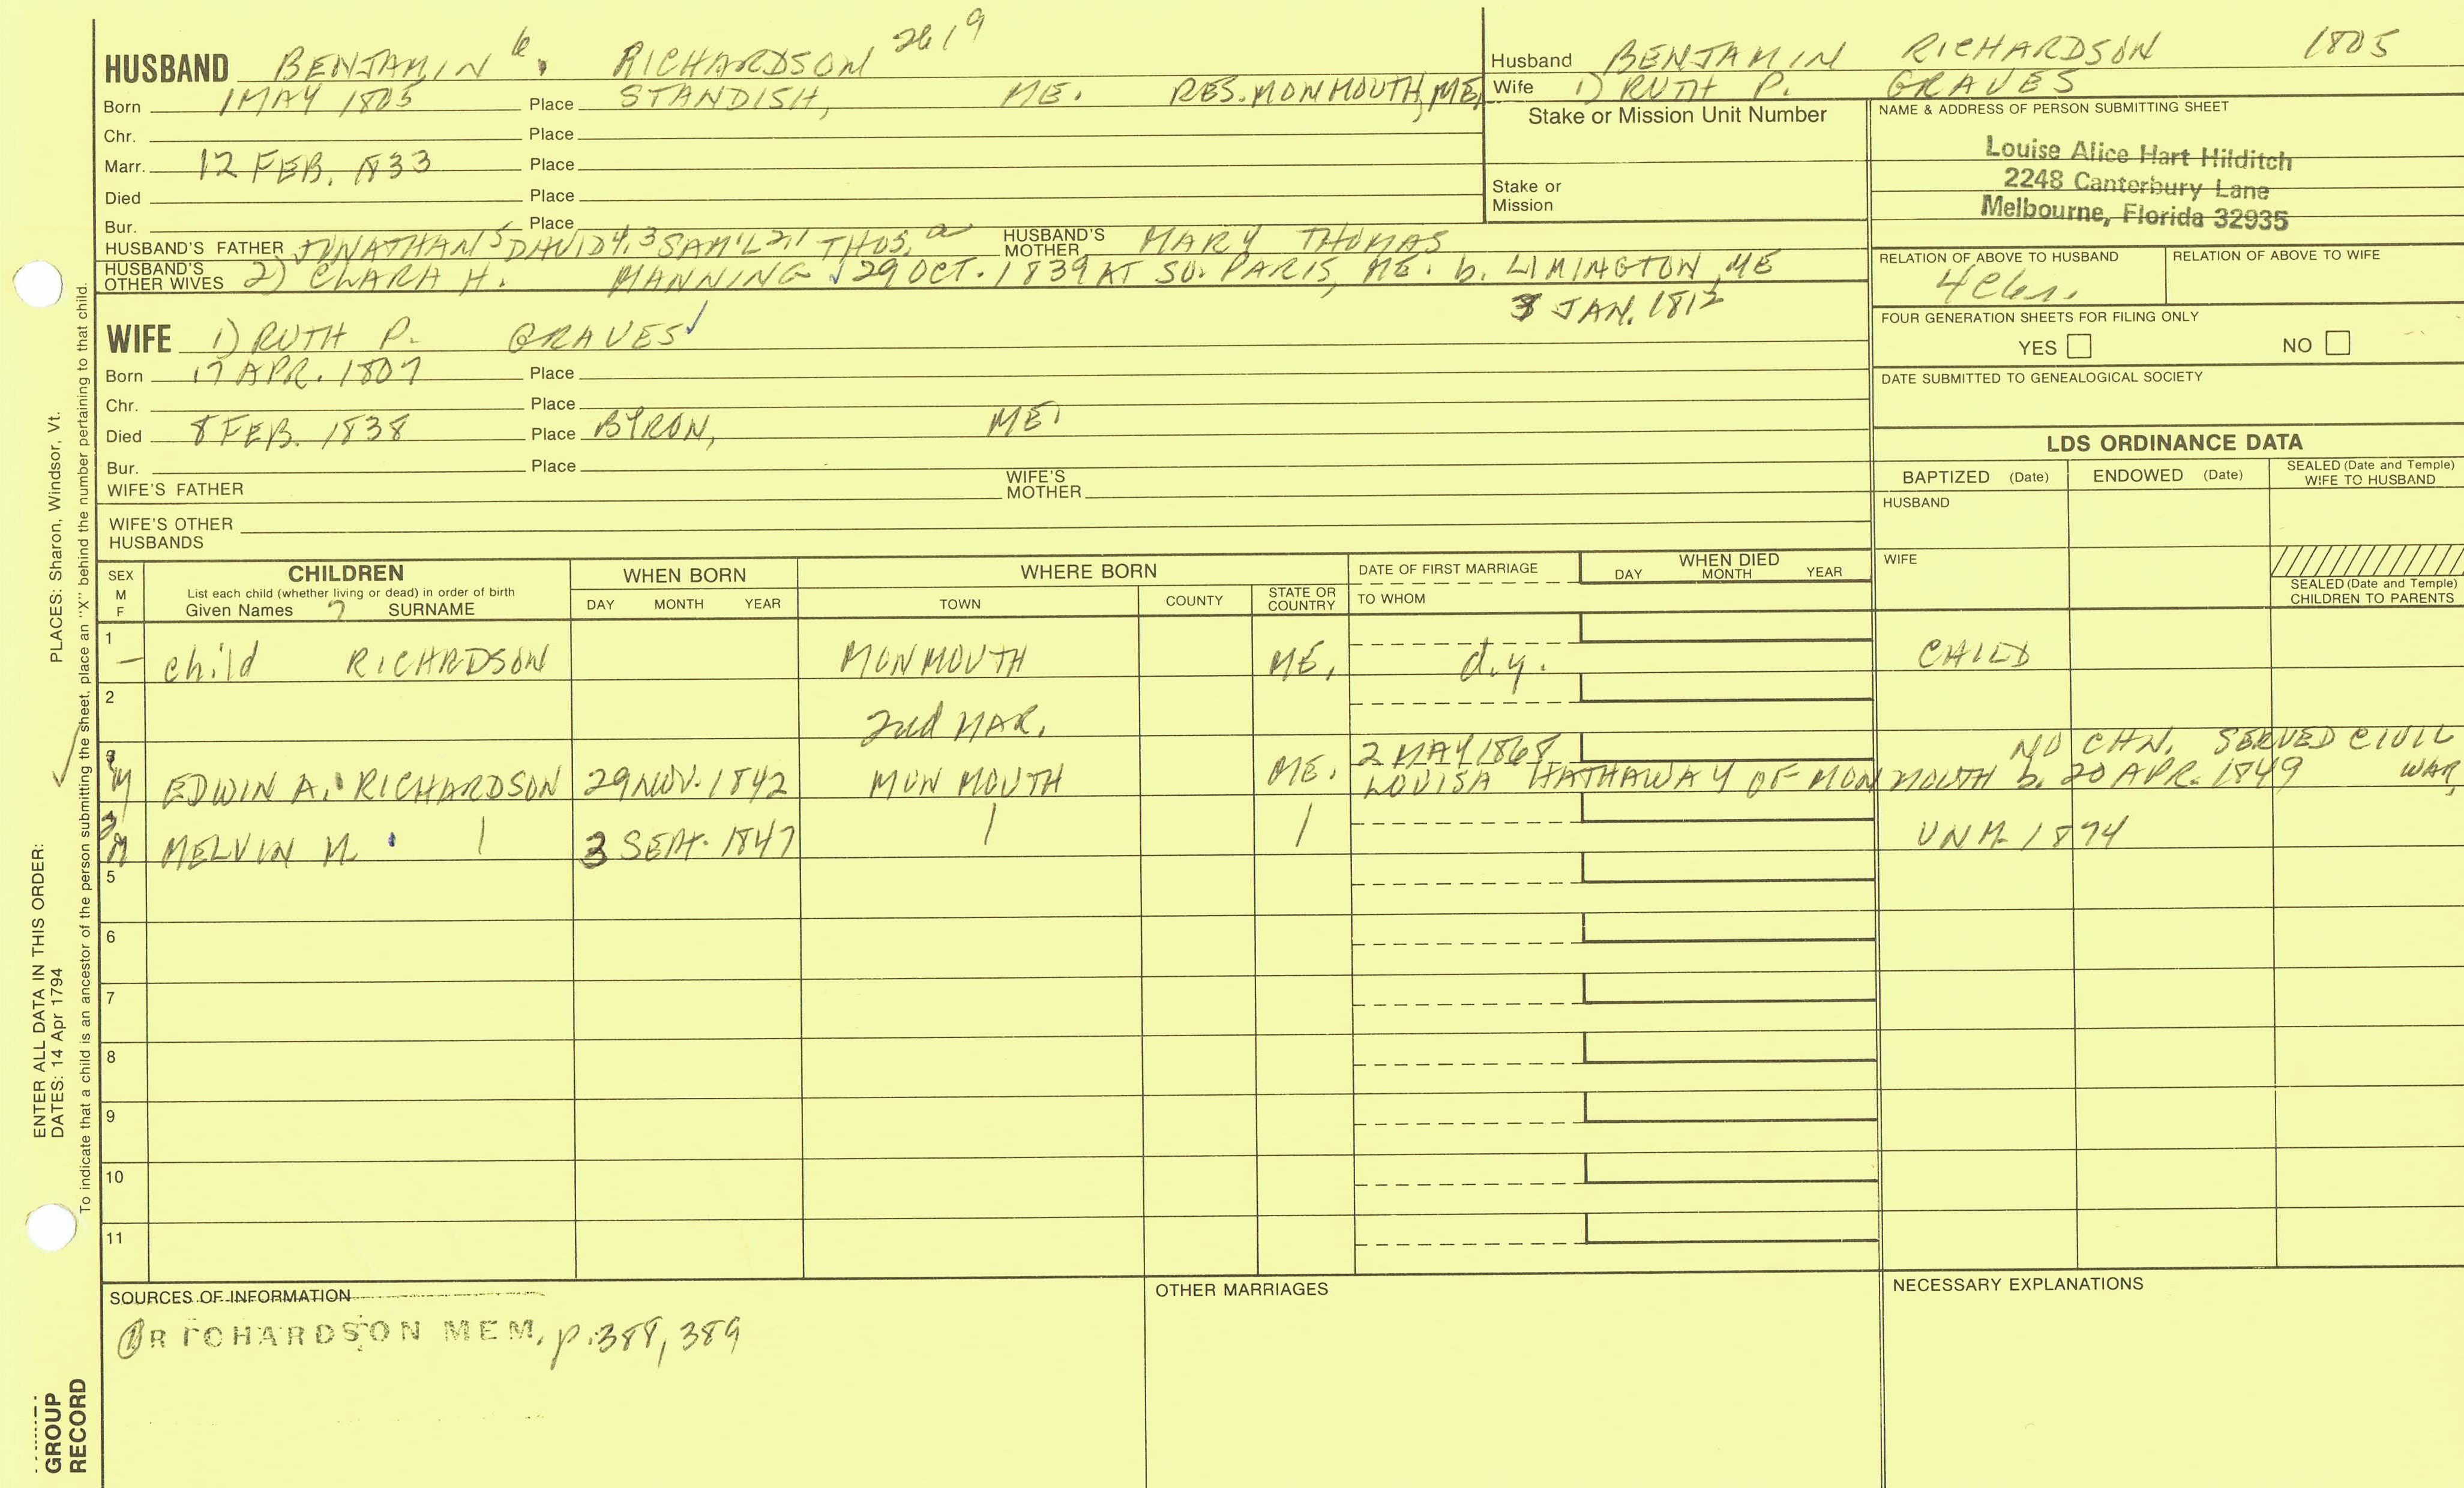 HUSBAND BENJAMIN 6. RICHARDSON 2619
Born 1 MAY 1805 Place STANDISH, ME. RES. MONMOUTH, ME.
Chr. Place
Marr. 12 FEB. 1833 Place
Died Place
Bur. Place
HUSBAND'S FATHER JONATHAN 5 DAVID 4, 3 SAM'L 2, 1 THOS. HUSBAND'S MOTHER MARY THOMAS
HUSBAND'S OTHER WIVES 2) CLARA H. MANNING √ 29 OCT. 1839 AT SO. PARIS, ME. b. LIMINGTON, ME
JAN. 1812
Husband BENJAMIN RICHARDSON 1805
Wife 1) RUTH P. GRAVES
Stake or Mission Unit Number
Stake or Mission
NAME & ADDRESS OF PERSON SUBMITTING SHEET
Louise Alice Hart Hilditch
2248 Canterbury Lane
Melbourne, Florida 32935
RELATION OF ABOVE TO HUSBAND RELATION OF ABOVE TO WIFE
FOUR GENERATION SHEETS FOR FILING ONLY
YES NO
DATE SUBMITTED TO GENEALOGICAL SOCIETY
WIFE 1) RUTH P. GRAVES √
Born 17 APR. 1807 Place
Chr. Place
Died 8 FEB. 1838 Place BYRON, ME.
Bur. Place
WIFE'S FATHER WIFE'S MOTHER
WIFE'S OTHER HUSBANDS
LDS ORDINANCE DATA
BAPTIZED (Date) ENDOWED (Date) SEALED (Date and Temple) WIFE TO HUSBAND
HUSBAND
WIFE
SEALED (Date and Temple) CHILDREN TO PARENTS
SEX M F
CHILDREN
List each child (whether living or dead) in order of birth
Given Names ? SURNAME
WHEN BORN
DAY MONTH YEAR
WHERE BORN
TOWN COUNTY STATE OR COUNTRY
DATE OF FIRST MARRIAGE
TO WHOM
WHEN DIED
DAY MONTH YEAR
1 – child RICHARDSON MONMOUTH ME. d.y. CHILD
2 2nd MAR.
M EDWIN A. RICHARDSON 29 NOV. 1842 MONMOUTH ME. 2 MAY 1868 NO CHN. SERVED CIVIL WAR.
LOUISA HATHAWAY OF MONMOUTH b. 20 APR. 1849
M MELVIN M. 3 SEPT. 1847 UNM. 1874
5
6
7
8
9
10
11
SOURCES OF INFORMATION
① RICHARDSON MEM. p. 388, 389
OTHER MARRIAGES
NECESSARY EXPLANATIONS
PLACES: Sharon, Windsor, Vt.
To indicate that a child is an ancestor of the person submitting the sheet, place an "X" behind the number pertaining to that child.
ENTER ALL DATA IN THIS ORDER:
DATES: 14 Apr 1794
GROUP
RECORD